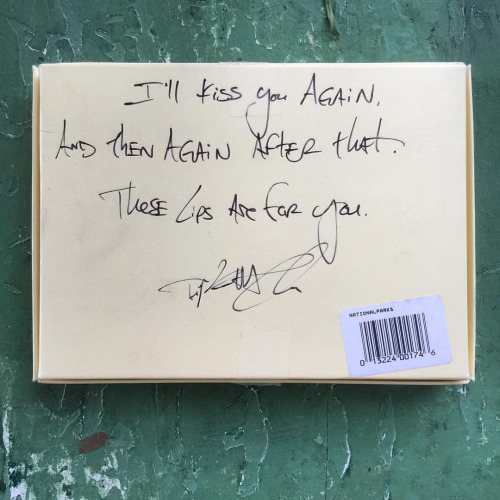 I'll kiss you AGAiN.
AND thEN AGAiN AFtER that.
These Lips Are for you.
NATIONALPARKS
0 13224 00174 6